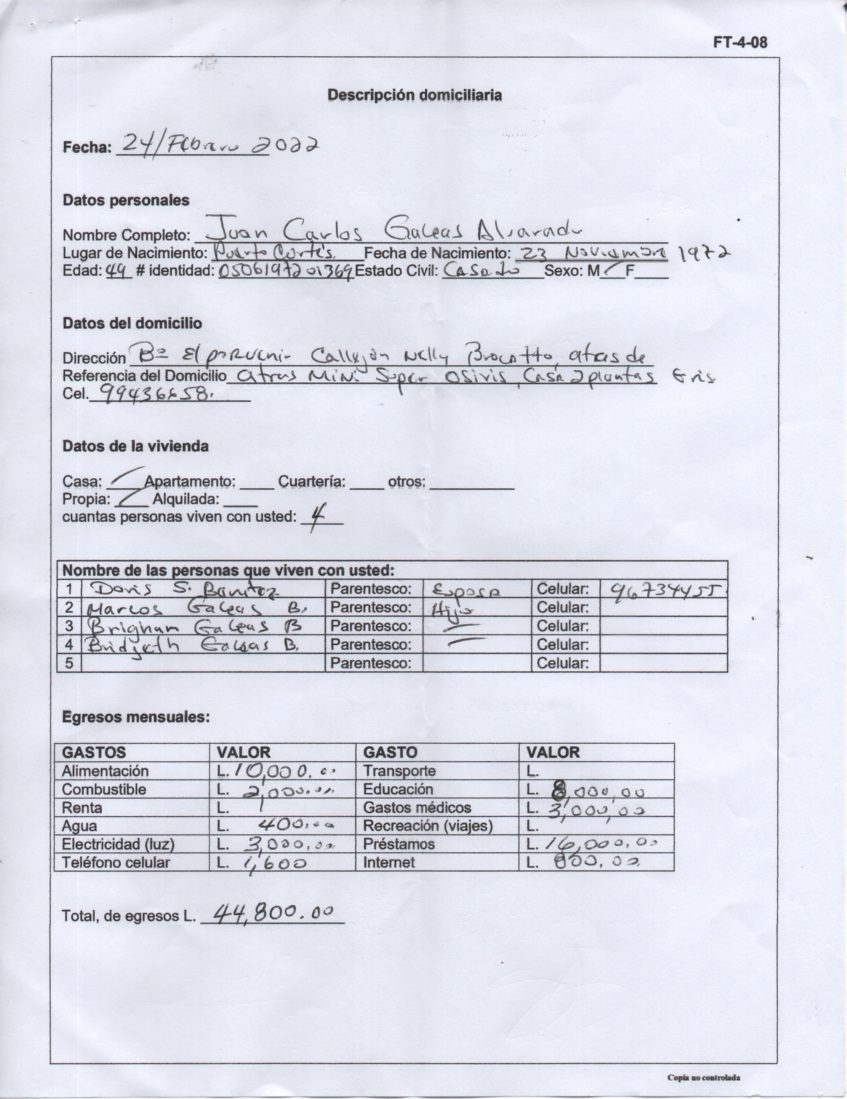 FT-4-08
Descripción domiciliaria
Fecha: 24/Febrero 2022
Datos personales
Nombre Completo: Juan Carlos Galeas Alvarado
Lugar de Nacimiento: Puerto Cortés. Fecha de Nacimiento: 23 Noviembre 1972
Edad: 49 # identidad: 0506197201369 Estado Civil: Casado Sexo: M ✓ F
Datos del domicilio
Dirección Bº El porvenir Callejón Nelly atras de
Referencia del Domicilio atras Mini Super Osiris, Casa 2 plantas Gris
Cel.
Datos de la vivienda
Casa: ✓ Apartamento: ____ Cuartería: ____ otros: ____
Propia: ✓ Alquilada: ____
cuantas personas viven con usted: 4
Nombre de las personas que viven con usted:
1 Doris S. Benitez Parentesco: Esposa Celular: 96734455
2 Marcos Galeas B. Parentesco: Hijo Celular:
3 Brigham Galeas B Parentesco: — Celular:
4 Bridjeth Galeas B. Parentesco: — Celular:
5 Parentesco: Celular:
Egresos mensuales:
GASTOS VALOR GASTO VALOR
Alimentación L. 10,000.00 Transporte L.
Combustible L. 2,000.00 Educación L. 8,000,00
Renta L. / Gastos médicos L. 3,000,00
Agua L. 400,00 Recreación (viajes) L.
Electricidad (luz) L. 3,000,00 Préstamos L. 16,000,00
Teléfono celular L. 1,600 Internet L. 800,00
Total, de egresos L. 44,800.00
Copia no controlada